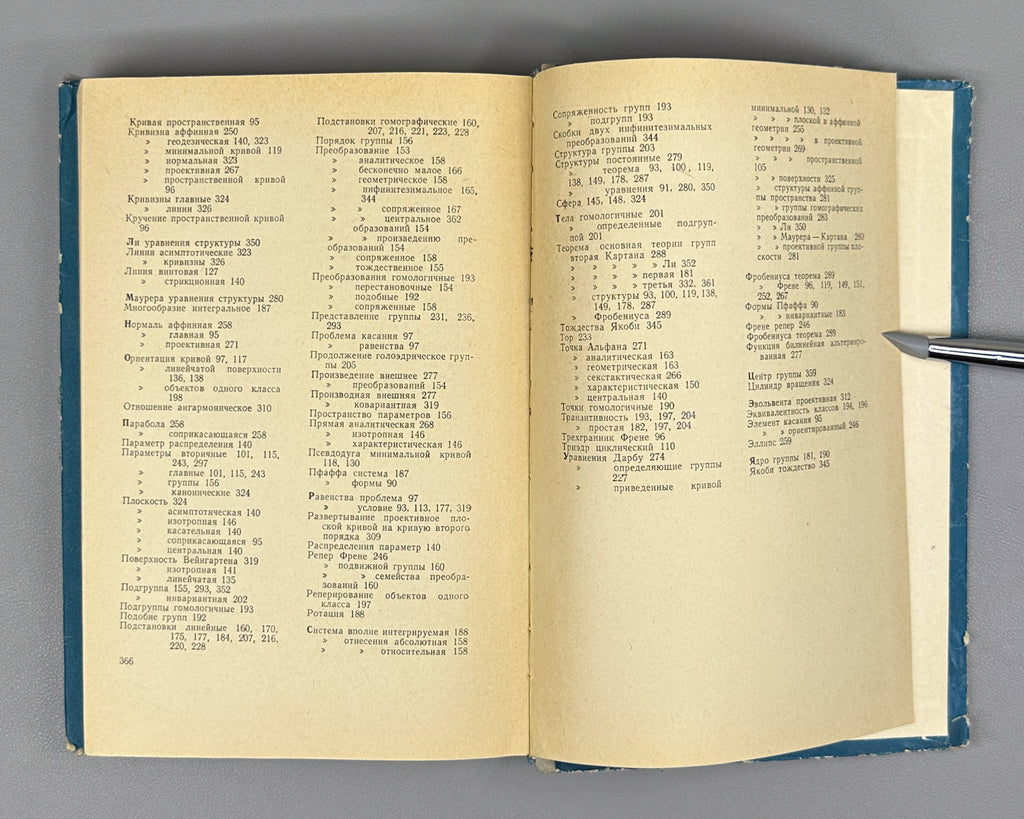 Кривая пространственная 95
Кривизна аффинная 250
» геодезическая 140, 323
» минимальной кривой 119
» нормальная 323
» проективная 267
» пространственной кривой
96
Кривизны главные 324
» линии 326
Кручение пространственной кривой
96
Ли уравнения структуры 350
Линии асимптотические 323
» кривизны 326
Линия винтовая 127
» стрикционная 140
Маурера уравнения структуры 280
Многообразие интегральное 187
Нормаль аффинная 258
» главная 95
» проективная 271
Ориентация кривой 97, 117
» линейчатой поверхности
136, 138
» объектов одного класса
198
Отношение ангармоническое 310
Парабола 258
» соприкасающаяся 258
Параметр распределения 140
Параметры вторичные 101, 115,
243, 297
» главные 101, 115, 243
» группы 156
» канонические 324
Плоскость 324
» асимптотическая 140
» изотропная 146
» касательная 140
» соприкасающаяся 95
» центральная 140
Поверхность Вейнгартена 319
» изотропная 141
» линейчатая 135
Подгруппа 155, 293, 352
» инвариантная 202
Подгруппы гомологичные 193
Подобие групп 192
Подстановки линейные 160, 170,
175, 177, 184, 207, 216,
220, 228
366
Подстановки гомографические 160,
207, 216, 221, 223, 228
Порядок группы 156
Преобразование 153
» аналитическое 158
» бесконечно малое 166
» геометрическое 158
» инфинитезимальное 165,
344
» » сопряженное 167
» » центральное 362
образований 154
» » произведению пре-
образований 154
» сопряженное 158
» тождественное 155
Преобразования гомологичные 193
» перестановочные 154
» подобные 192
» сопряженные 158
Представление группы 231, 236,
293
Проблема касания 97
» равенства 97
Продолжение голоэдрическое груп-
пы 205
Произведение внешнее 277
» преобразований 154
Производная внешняя 277
» ковариантная 319
Пространство параметров 156
Прямая аналитическая 268
» изотропная 146
» характеристическая 146
Псевдодуга минимальной кривой
118, 130
Пфаффа система 187
» формы 90
Равенства проблема 97
» условие 93, 113, 177, 319
Развертывание проективное пло-
ской кривой на кривую второго
порядка 309
Распределения параметр 140
Репер Френе 246
» подвижной группы 160
» » семейства преобра-
зований 160
Реперирование объектов одного
класса 197
Ротация 188
Система вполне интегрируемая 188
» отнесения абсолютная 158
» » относительная 158
Сопряженность групп 193
» подгрупп 193
Скобки двух инфинитезимальных
преобразований 344
Структура группы 203
Структуры постоянные 279
» теорема 93, 100, 119,
138, 149, 178, 287
» уравнения 91, 280, 350
Сфера 145, 148, 324
Тела гомологичные 201
» определенные подгруп-
пой 201
Теорема основная теории групп
вторая Картана 288
» » » » Ли 352
» » » » первая 181
» » » » третья 332, 361
» структуры 93, 100, 119, 138,
149, 178, 287
» Фробениуса 289
Тождества Якоби 345
Тор 233
Точка Альфана 271
» аналитическая 163
» геометрическая 163
» секстактическая 266
» характеристическая 150
» центральная 140
Точки гомологичные 190
Транзитивность 193, 197, 204
» простая 182, 197, 204
Трехгранник Френе 96
Триэдр циклический 110
Уравнения Дарбу 274
» определяющие группы
227
» приведенные кривой
минимальной 130, 132
» » » плоской в аффинной
геометрии 255
» » » » в проективной
геометрии 269
» » » пространственной
105
» » поверхности 325
» структуры аффинной груп-
пы пространства 281
» » группы гомографических
преобразований 283
» » Ли 350
» » Маурера — Картана 280
» » проективной группы пло-
скости 281
Фробениуса теорема 289
» Френе 96, 119, 149, 151,
252, 267
Формы Пфаффа 90
» » инвариантные 183
Френе репер 246
Фробениуса теорема 289
Функция билинейная альтерниро-
ванная 277
Центр группы 359
Цилиндр вращения 324
Эвольвента проективная 312
Эквивалентность классов 194, 196
Элемент касания 95
» » ориентированный 246
Эллипс 259
Ядро группы 181, 190
Якоби тождество 345